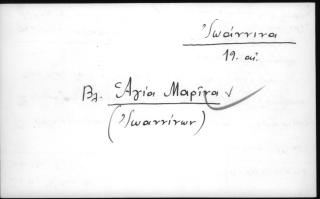 Ἰωάννινα
19. αἰ.
Βλ. Ἁγία Μαρῖνα
(Ἰωαννίνων)